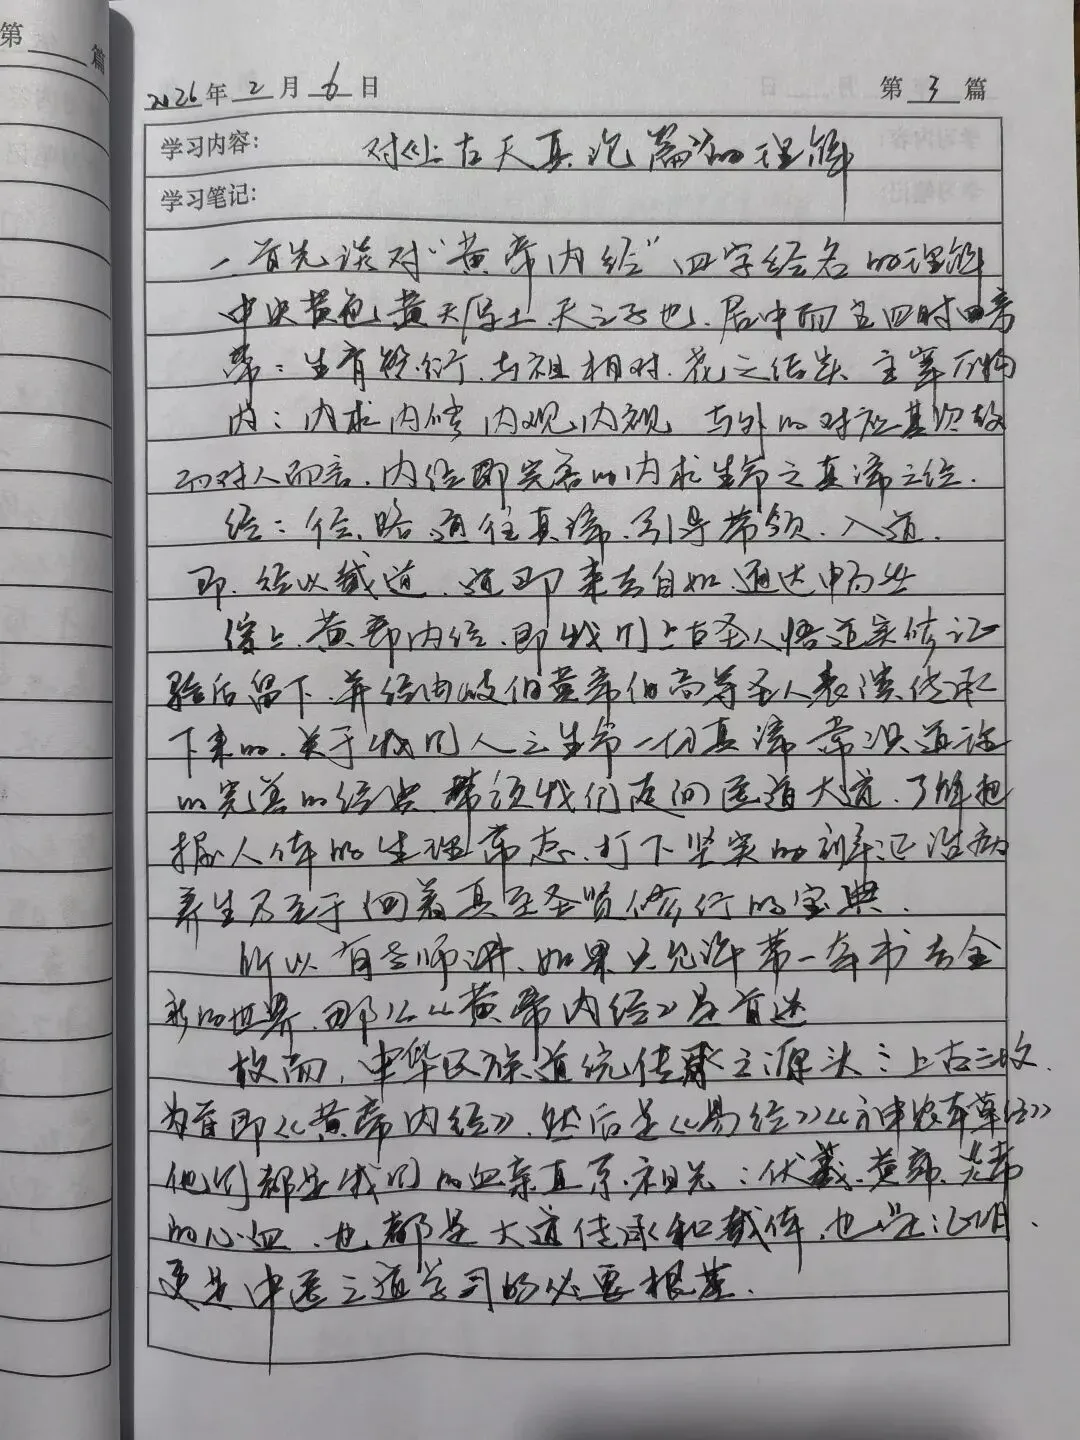 第___篇
2026年2月6日 第3篇
学习内容: 对《上古天真论篇》的理解
学习笔记:
一首先谈对“黄帝内经”四字经名的理解
中央黄色,黄天厚土.天之子也.居中而主四时四帝
帝:生育 衍.与祖相对.花之结 主宰万物
内:内求内修 内观内视 与外的对应
而对人而言.内经即完善的内求生命之真谛之经.
经:径、路 通往真谛.引导带领.入道.
即.经以载道.道即来去自如.通达
综上.黄帝内经.即我们上古圣人悟道实修证
验后留下.并经由岐伯黄帝伯高等圣人表演传承
下来的.关于我们人之生命一切真谛常识道途
的完善的经典.带领我们 医道大道.了解把
握人体的生理常态.打下坚实的辩证治病
养生乃至于 真至圣贤修行的宝典.
所以有老师讲.如果只允许带一本书去全
新的世界.那么《黄帝内经》是首选
故而,中华民族道统传承之源头:上古三坟.
为首即《黄帝内经》.然后是《易经》《神农本草经》
他们都是我们的血亲直系.祖先:伏羲.黄帝.炎帝
的心血.也都是大道传承和载体.也是
更是中医之道学习的必要根基.